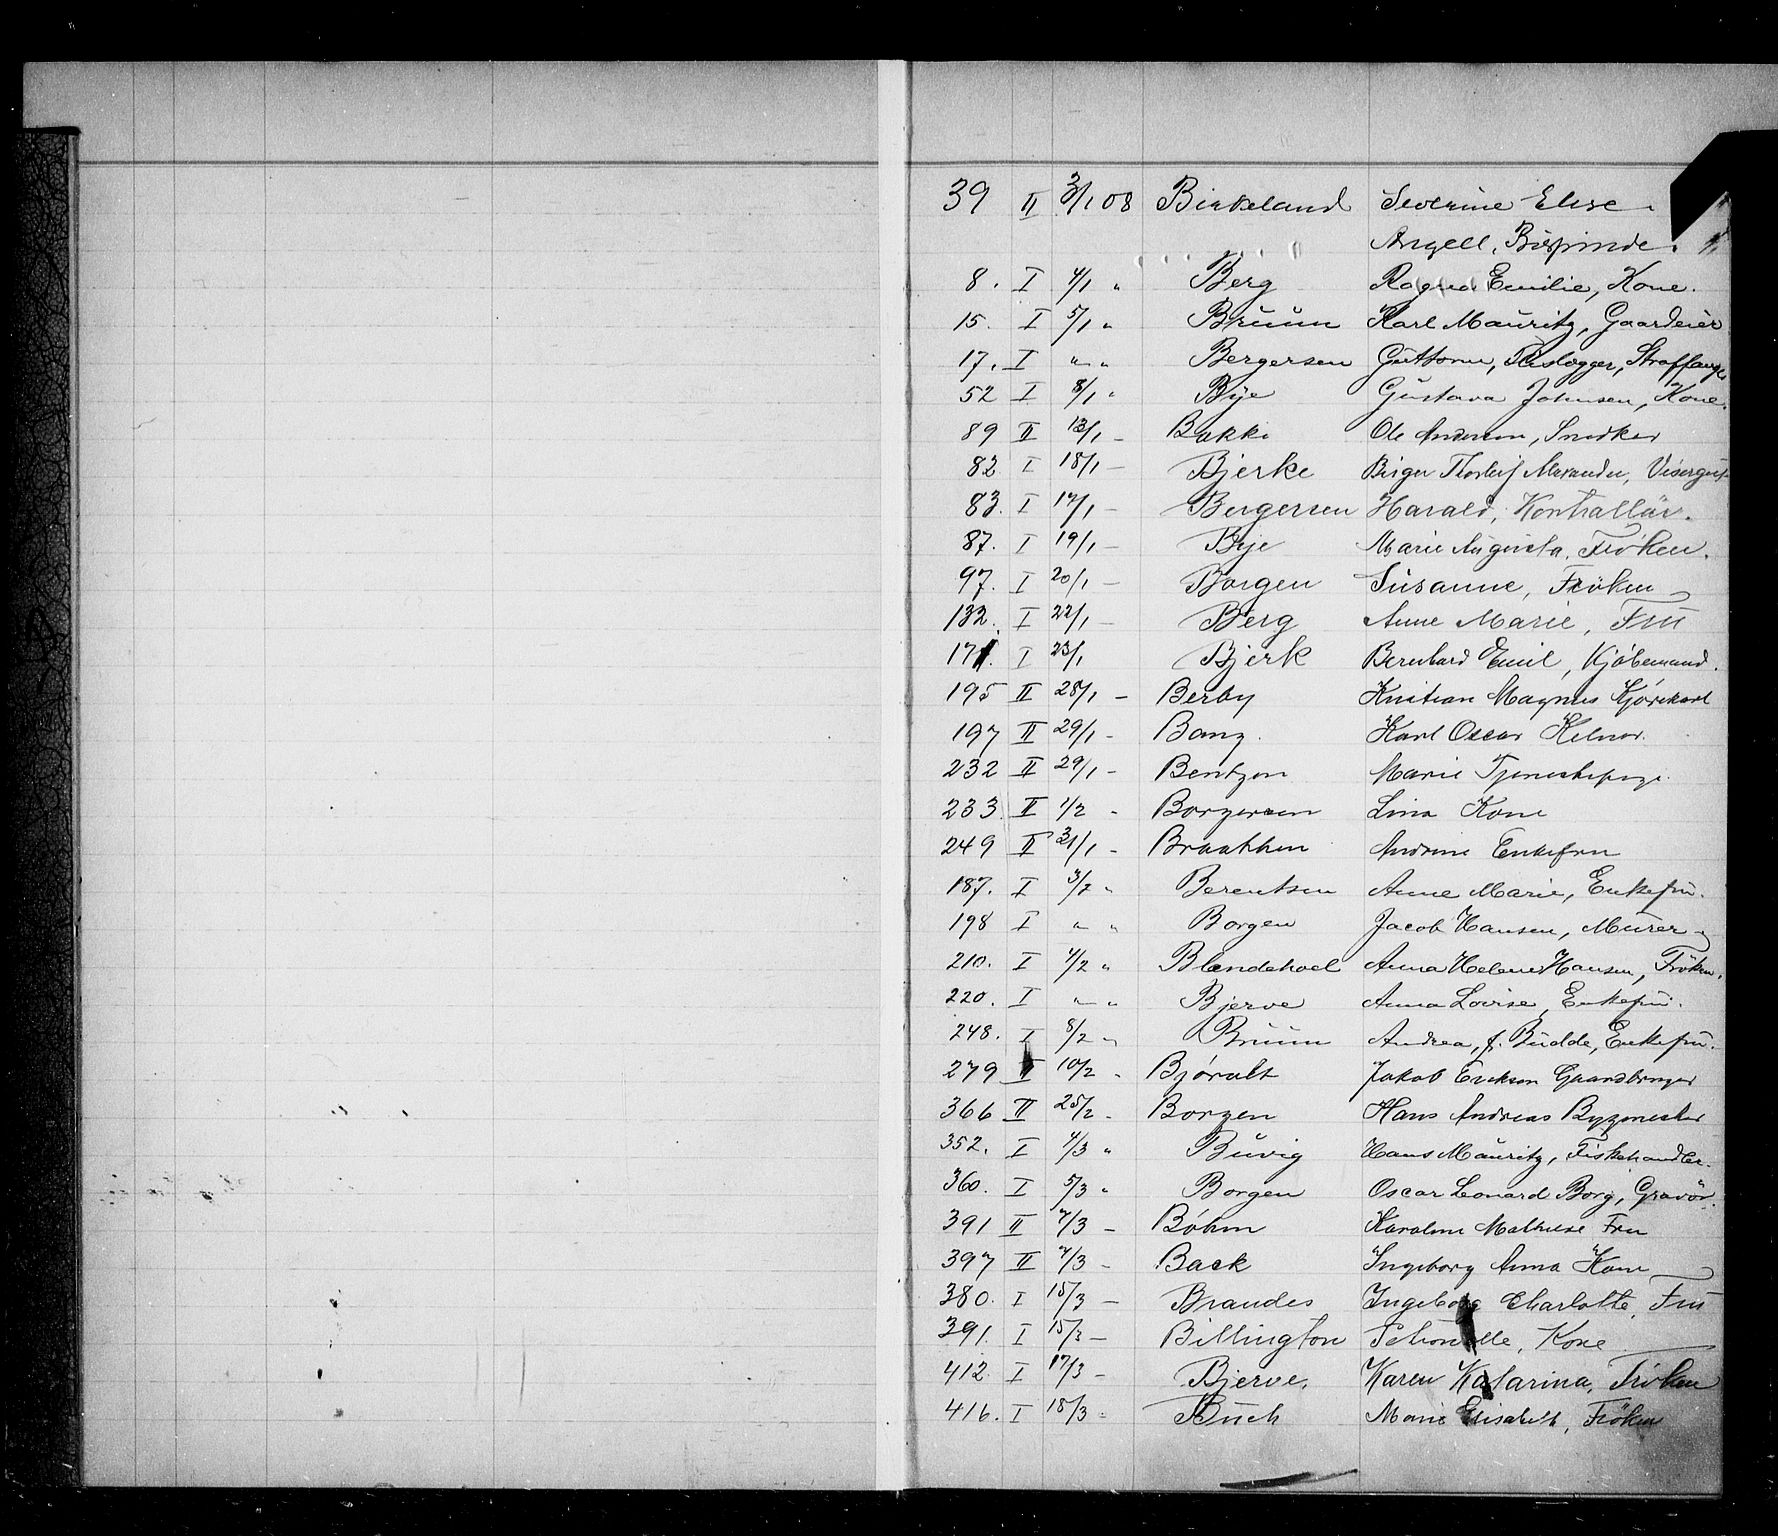 39 II 3/1 08 Birkeland Severine Elise
Angell, Bispinde.
8. I 4/1 " Berg Ragna Emilie, Kone.
15. I 5/1 " Bruun Karl Mauritz, Gaardeier
17. I " " Bergersen Guttorm, Straffange
52 I 8/1 " Bye Gustava Johnsen, Kone.
89 II 13/1 - Bakke Ole Andersen, Snedker
82 I 18/1 - Bjerke Birger Thorleif Alexander, Visergut
83. I 17/1 - Bergersen Harald, Kontrallär.
87. I 19/1 - Bye Marie Augusta, Fröken.
97. I 20/1 - Borgen Susanne, Fröken
132. I 22/1 - Berg Anne Marie, Fru
171. I 23/1 Bjerk Bernhard Emil, Kjøbmand.
195 II 28/1 - Berby Kristian Magnus Kjørekarl
197 II 29/1 - Bang. Karl Oscar Kelner.
232 II 29/1 - Bentzon Marie Tjenestepige.
233 II 1/2 - Borgersen Lina Kone
249 II 31/1 - Braathen Andrine Enkefru
187. I 3/2 " Berentsen Anne Marie, Enkefru.
198 I " " Borgen Jacob Hansen, Murer
210. I 4/2 " Blendehoel Anna Helene Hansen, Fröken.
220. I " " Bjerve Anna Lovise, Enkefru.
248. I 8/2 " Bruun Andrea, f. Budde, Enkefru.
279 II 10/2 " Bjøralt Jakob Erikson Gaardbruger
366 II 25/2 - Borgen Hans Andreas Bygmester
352. I 4/3 " Buvig Hans Mauritz, Fiskehandler.
360. I 5/3 " Borgen Oscar Leonard Borg, Gravör.
391 II 7/3 - Bøhm Karoline Mathilde Fru
397 II 7/3 - Back Ingeborg Anna Kone
380. I 15/3 - Brandes Ingeborg Charlotte, Fru
391. I 15/3 - Billington Kone
412. I 17/3 - Bjerve, Karen Katarina, Fröken
416. I 18/3 - Buch Marie Elisabeth, Fröken